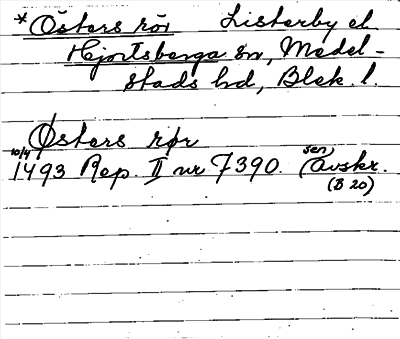 *Östers rör Listerby el.
Hjortsberga sn, Medel-
stads hd, Blek. l.
Østers rør
10/4 1493 Rep. II nr 7390. (sen, avskr.
(B 20)